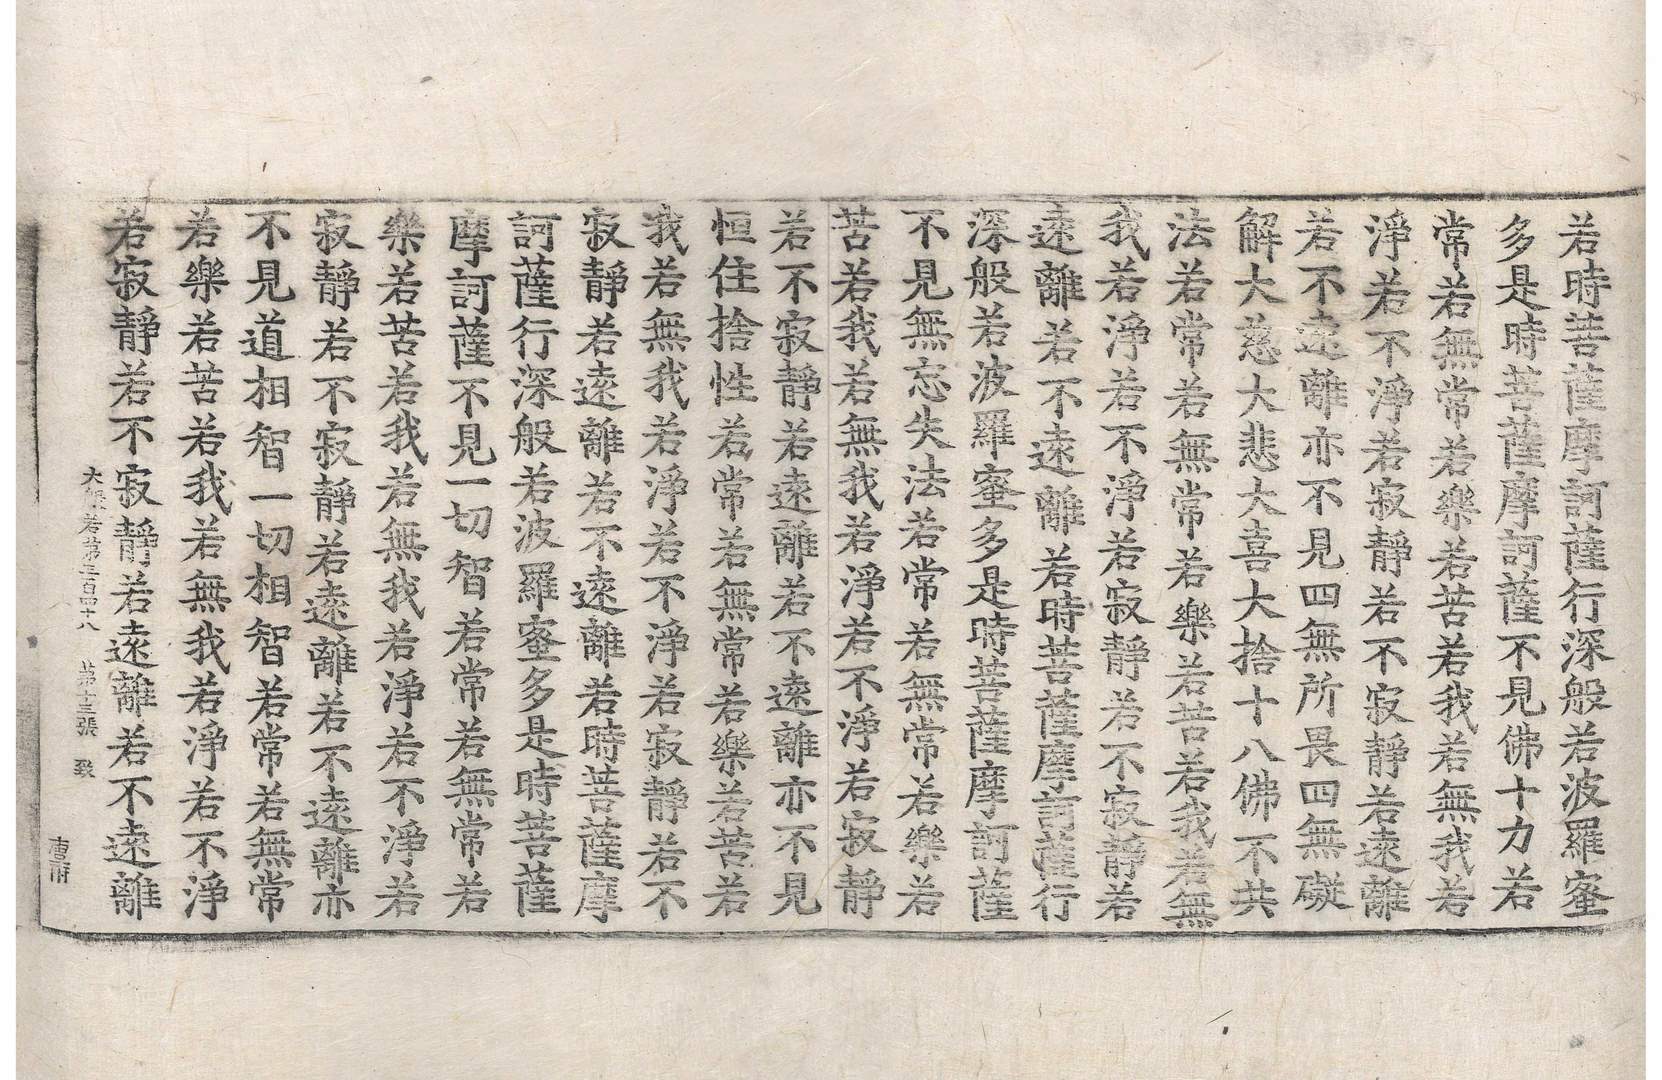 若時菩薩摩訶薩行深般若波羅蜜
多是時菩薩摩訶薩不見佛十力若
常若無常若樂若苦若我若無我若
淨若不淨若寂靜若不寂靜若遠離
若不遠離亦不見四無所畏四無礙
解大慈大悲大喜大捨十八佛不共
法若常若無常若樂若苦若我若無
我若淨若不淨若寂靜若不寂靜若
遠離若不遠離若時菩薩摩訶薩行
深般若波羅蜜多是時菩薩摩訶薩
不見無忘失法若常若無常若樂若
苦若我若無我若淨若不淨若寂靜
若不寂靜若遠離若不遠離亦不見
恒住捨性若常若無常若樂若苦若
我若無我若淨若不淨若寂靜若不
寂靜若遠離若不遠離若時菩薩摩
訶薩行深般若波羅蜜多是時菩薩
摩訶薩不見一切智若常若無常若
樂若苦若我若無我若淨若不淨若
寂靜若不寂靜若遠離若不遠離亦
不見道相智一切相智若常若無常
若樂若苦若我若無我若淨若不淨
若寂靜若不寂靜若遠離若不遠離
大般若第三百四十八　第十三張　致